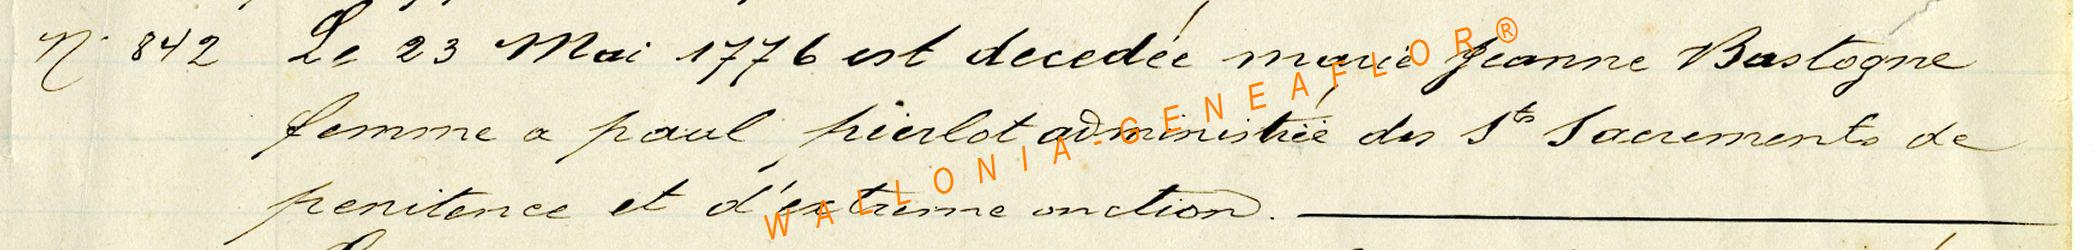 N° 842 Le 23 Mai 1776 est decedée marie Jeanne Bastogne
femme a paul pierlot administrée des Sts Sacrements de
penitence et d'extreme onction.
WALLONIA-GENEAFLOR®